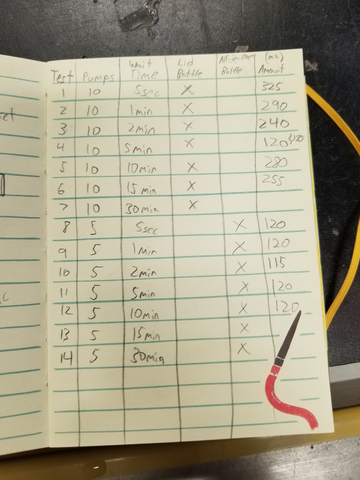 Test Pumps Wait Time Lid Bottle Bottle (mL) Amount
1 10 5sec X 325
2 10 1min X 290
3 10 2min X 240
4 10 5min X 120
5 10 10min X 280
6 10 15min X 255
7 10 30min X
8 5 5sec X 120
9 5 1min X 120
10 5 2min X 115
11 5 5min X 120
12 5 10min X 120
13 5 15min X
14 5 30min X